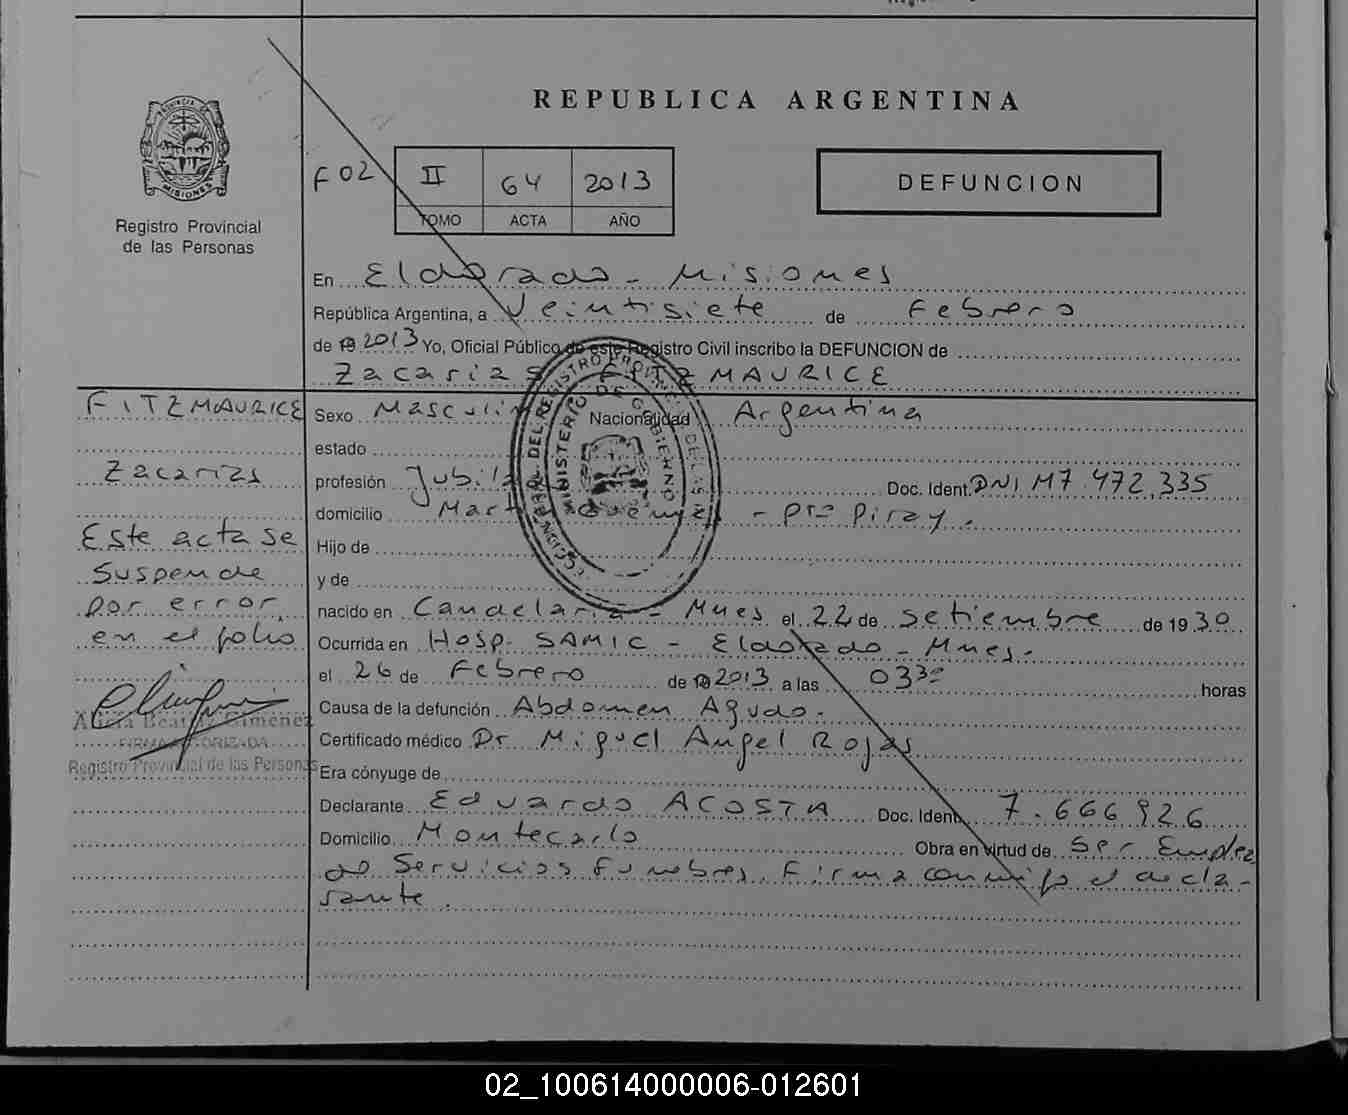 REPUBLICA ARGENTINA
PROVINCIA DE MISIONES
Registro Provincial
de las Personas
F 02
II 64 2013
TOMO ACTA AÑO
DEFUNCION
En Eldorado - Misiones
República Argentina, a Veintisiete de Febrero
de 19 2013 Yo, Oficial Público de este Registro Civil inscribo la DEFUNCION de
Zacarias FITZMAURICE
FITZMAURICE
Zacarias
Este acta se
suspende
por error
en el folio
Alicia Beatriz Gimenez
FIRMA AUTORIZADA
Registro Provincial de las Personas
Sexo Masculino Nacionalidad Argentina
estado
profesión Jubila Doc. Ident. DNI M7 472.335
domicilio - Pto Piray.
Hijo de
y de
nacido en Candelaria - Mnes el 22 de Setiembre de 1930
Ocurrida en Hosp. SAMIC - Eldorado - Mnes.
el 26 de Febrero de 19 2013 a las 03³⁰ horas
Causa de la defunción Abdomen Agudo.
Certificado médico Dr Miguel Angel Rojas
Era cónyuge de
Declarante Eduardo ACOSTA Doc. Ident. 7.666926
Domicilio Montecarlo Obra en virtud de Ser Emplea
do Servicios Funebres. Firma conmigo el decla-
rante.
MINISTERIO DE GOBIERNO
02_100614000006-012601